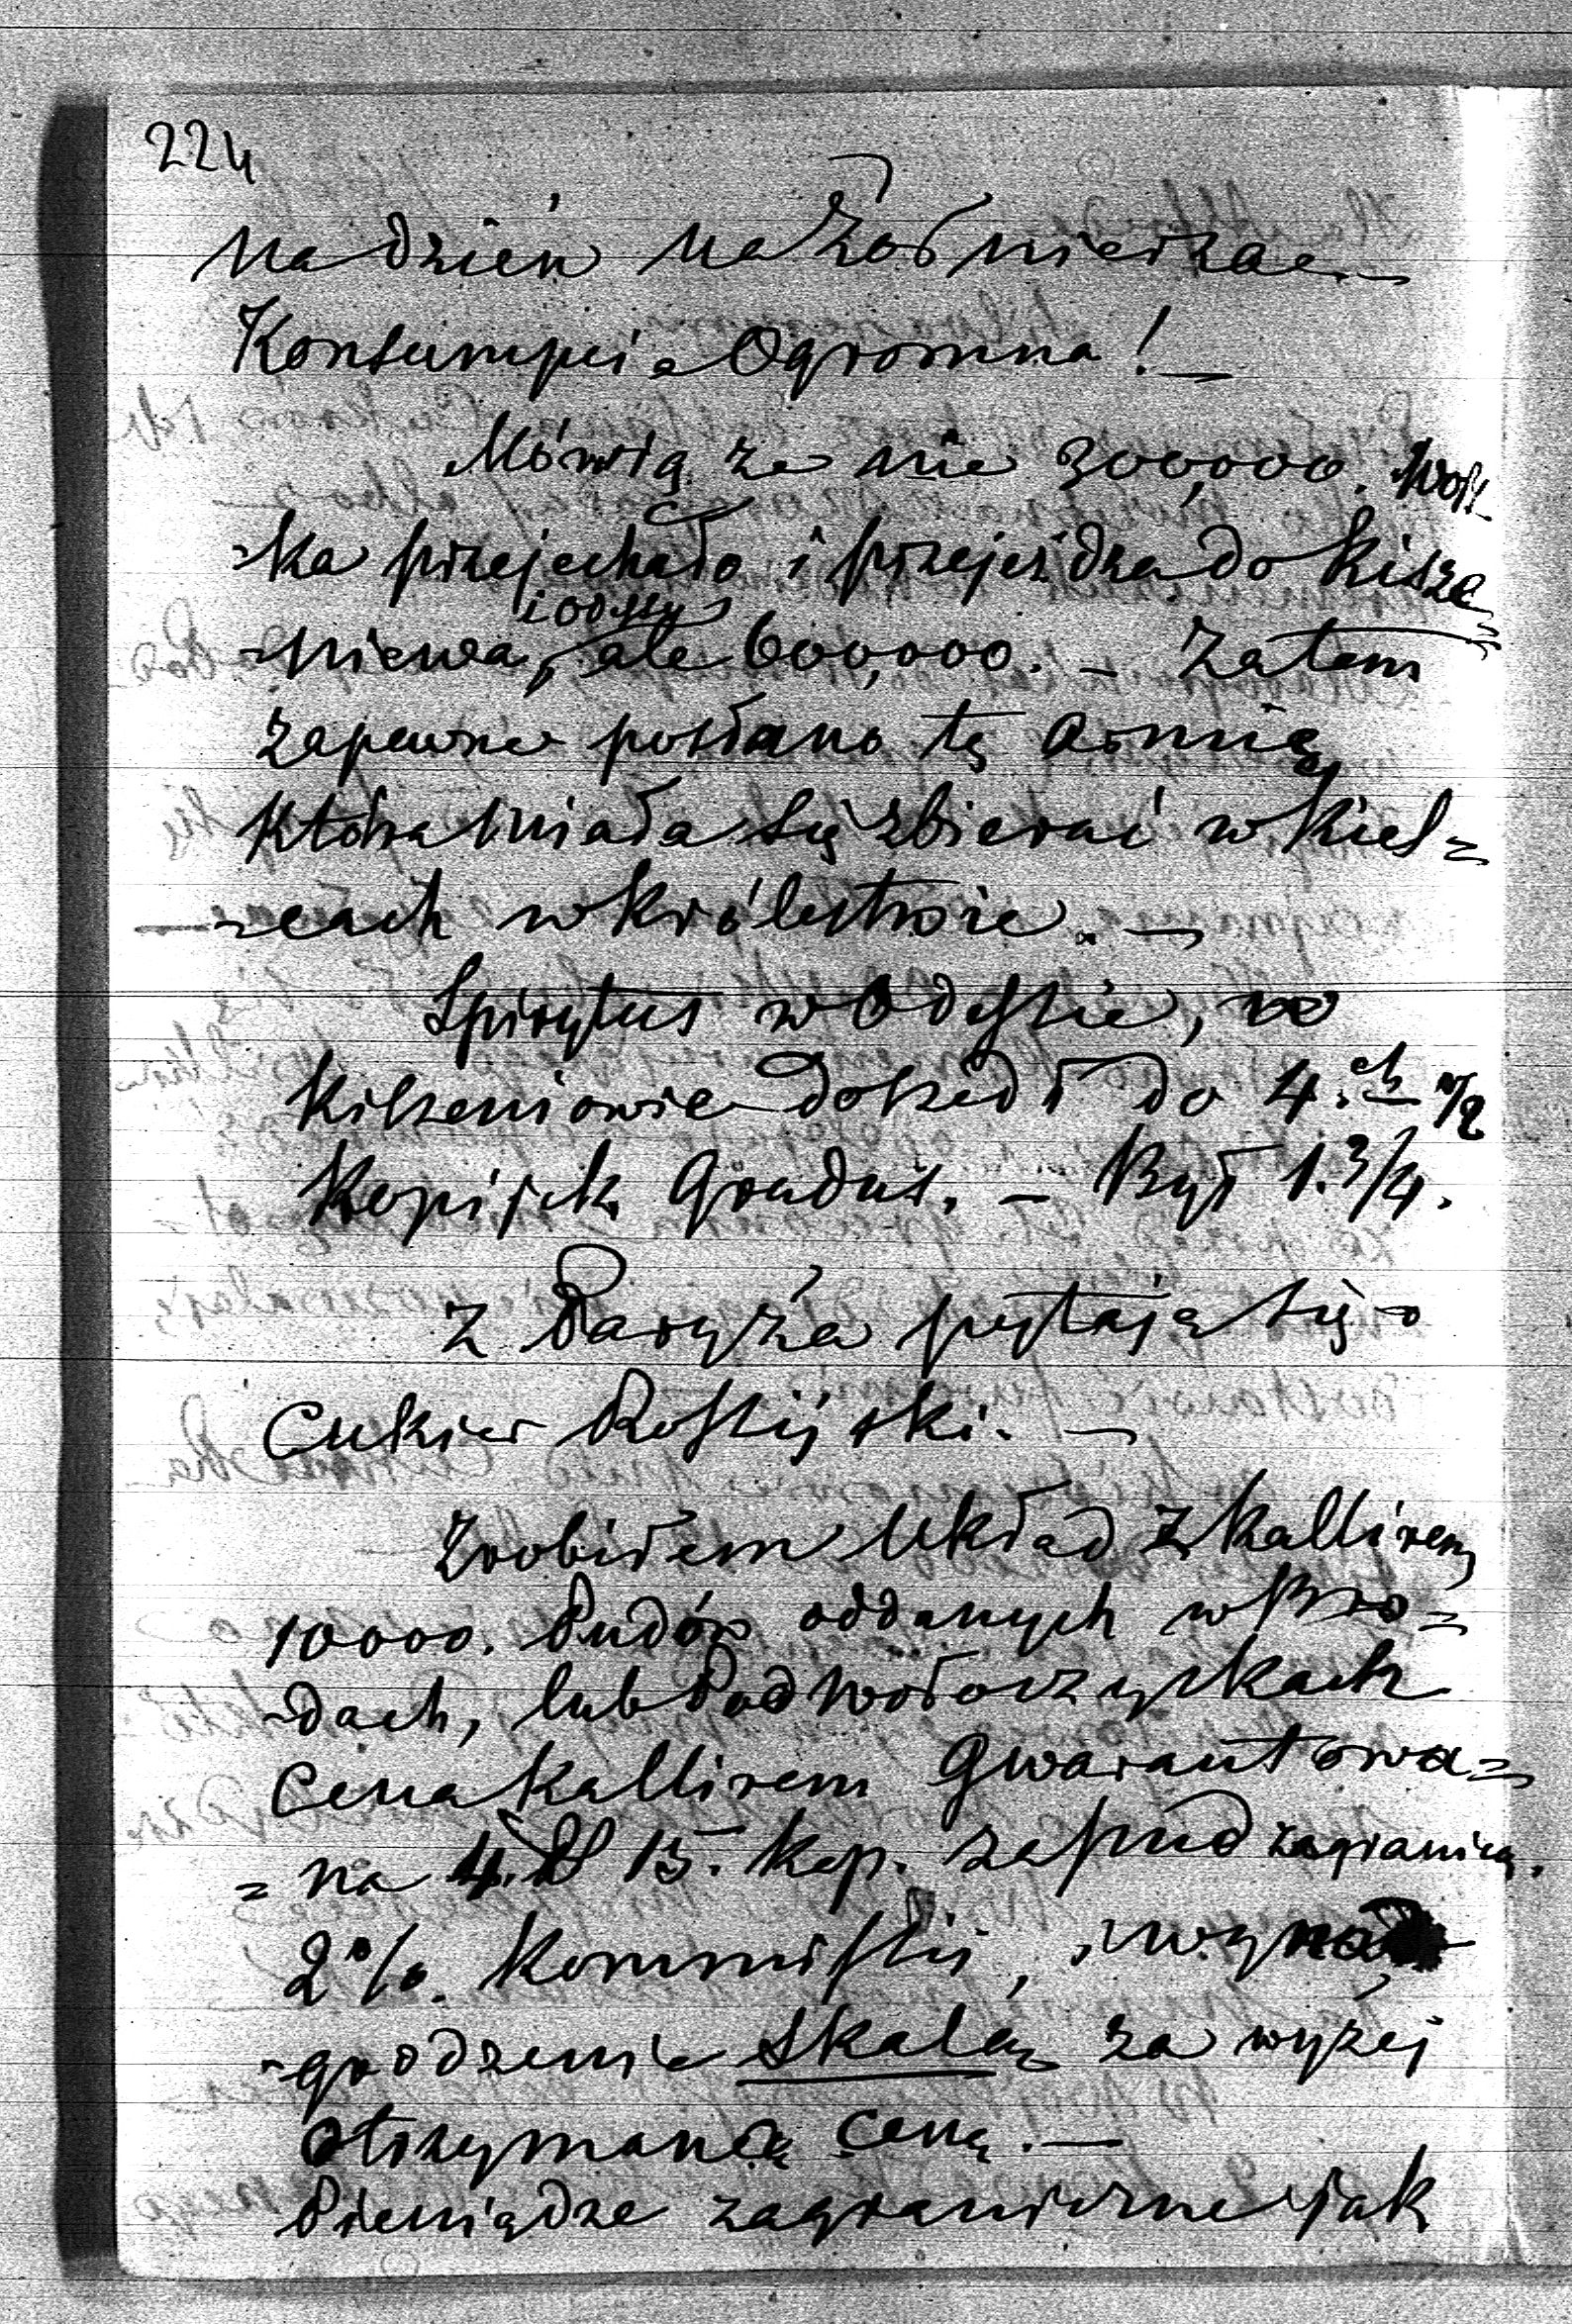 224
na dzień na żołnierza. —
Konsumpcia Ogromna! —
Mówią że nie 300,000. Woy-
-ska przejechało i przejeżdza do Kisze
-niewa, i Odessy ale 600,000. — Zatem
zapewne posłano tę armię
która miała się zbierać w Kiel=
-cach w Królestwie. —
Spirytus w Odessie, w
Kiszeniowie doszedł do 4.ch 1/2
Kopijek Gradus. — Był 1.3/4.
Z Paryża pytają się o
Cukier Rossijski. —
Zrobiłem Układ z Kallirem
10000. Pudów oddanych w Bro=
-dach, lub Podwołoczyskach
Cena Kallirem Gwarantowa=
=na 4. R 15. kop. za pud zagranicą.
2%. Kommissii, i wyna
-grodzenie skalą za wyżej
otrzymaną cenę. —
Pieniądze zagraniczne jak